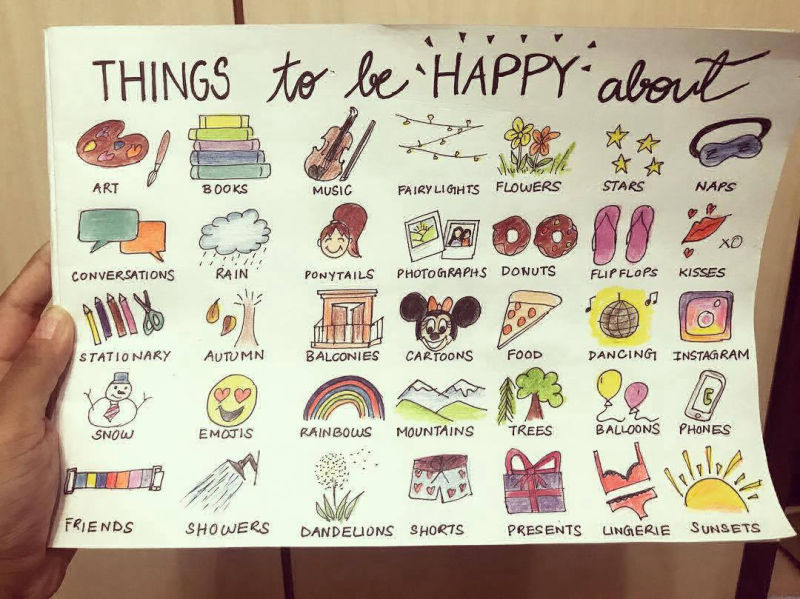 THINGS to be HAPPY about
ART BOOKS MUSIC FAIRYLIGHTS FLOWERS STARS NAPS
XO
CONVERSATIONS RAIN PONYTAILS PHOTOGRAPHS DONUTS FLIPFLOPS KISSES
STATIONARY AUTUMN BALCONIES CARTOONS FOOD DANCING INSTAGRAM
SNOW EMOJIS RAINBOWS MOUNTAINS TREES BALLOONS PHONES
FRIENDS SHOWERS DANDELIONS SHORTS PRESENTS LINGERIE SUNSETS